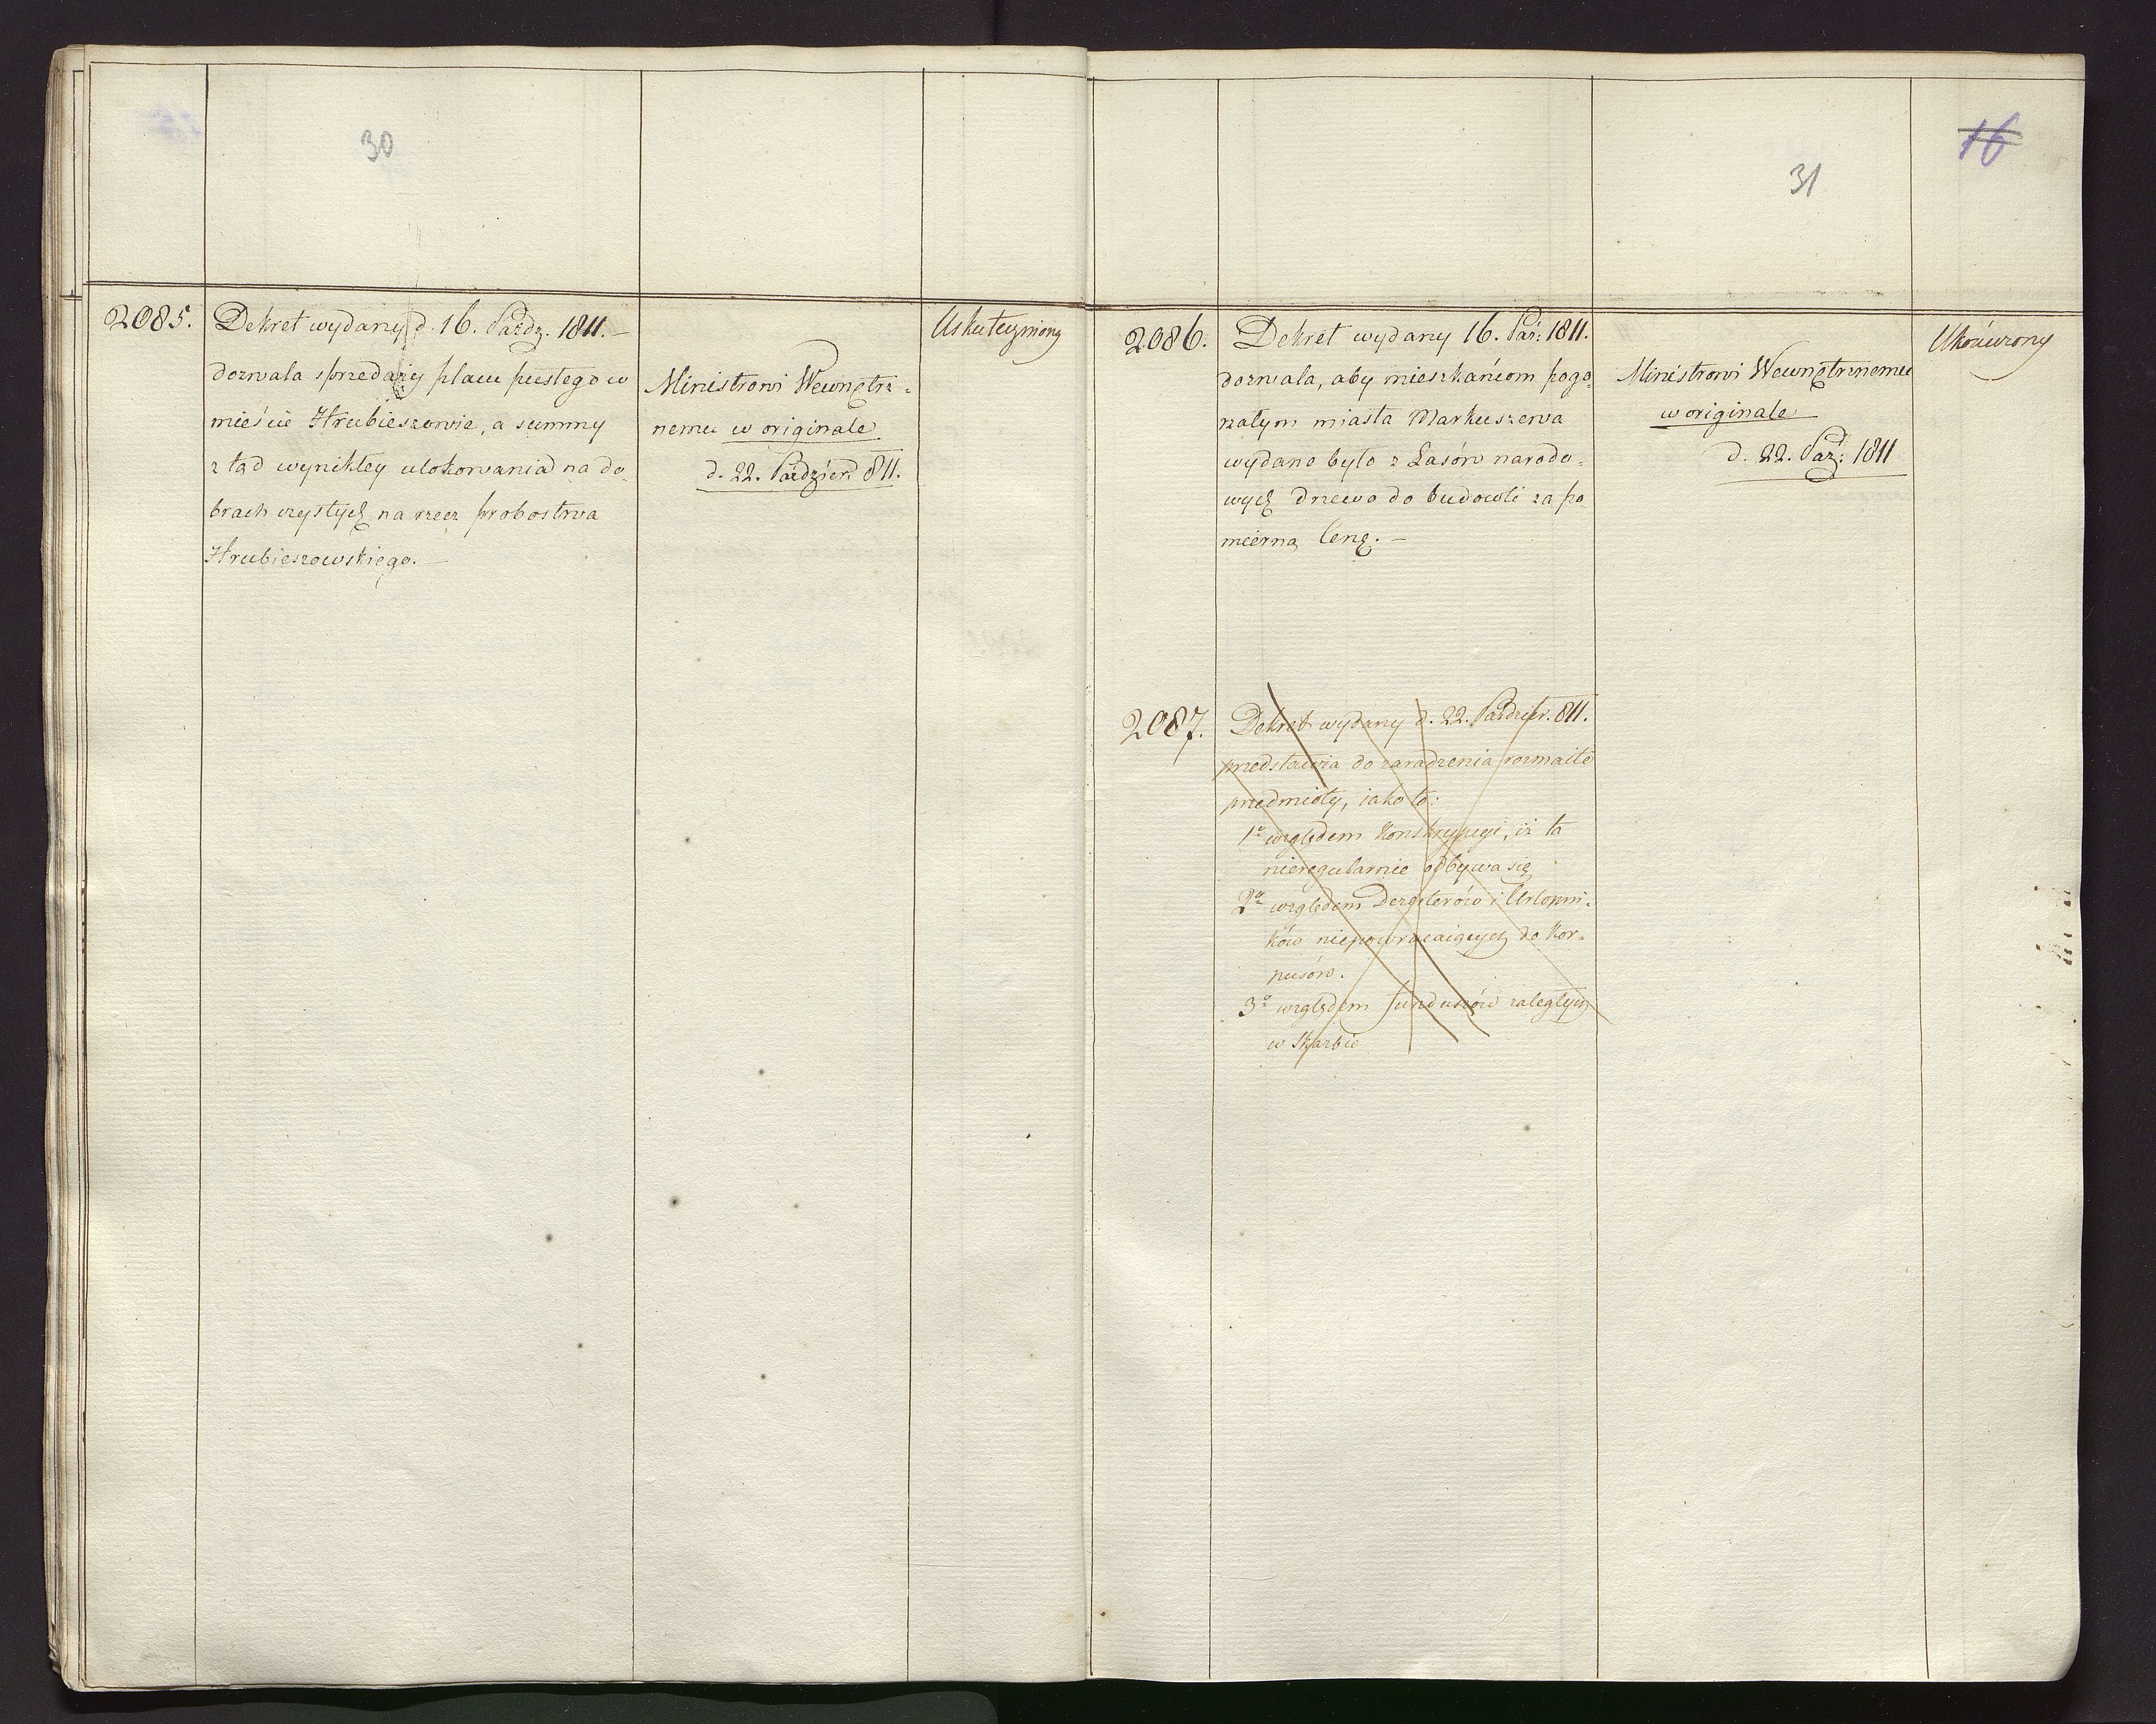 30
2085.
Dekret wydany d. 16. Paźdz. 1811. –
dozwala sprzedaży placu pustego w
mieście Hrubieszowie, a summy
z tąd wynikłey ulokowania na do
brach czystych na rzecz probostwa
Hrubieszowskiego. –
Ministrowi Wewnętrz-
nemu w originale
d. 22. Paźdźier. 811.
Uskuteczniony
16
31
2086.
Dekret wydany 16. Paź: 1811.
dozwala, aby mieszkańcom pogo-
rzałym miasta Markuszewa
wydane było z Lasów narodo-
wych drzewo do budowli za po
mierną Cenę. –
Ministrowi Wewnętrznemu
w originale
d. 22. Paź: 1811
Ukończony
2087.
Dekret wydany d. 22. Paździer. 811.
przedstawia do zaradzenia rozmaite
przedmioty, iako to:
1º względem Konskrypcyi, iż ta
nieregularnie odbywa się
2º względem Dezerterów i Urlopni-
ków niepowracaiących do Kor-
pusów.
3º względem funduszów zaległych
w Skarbie